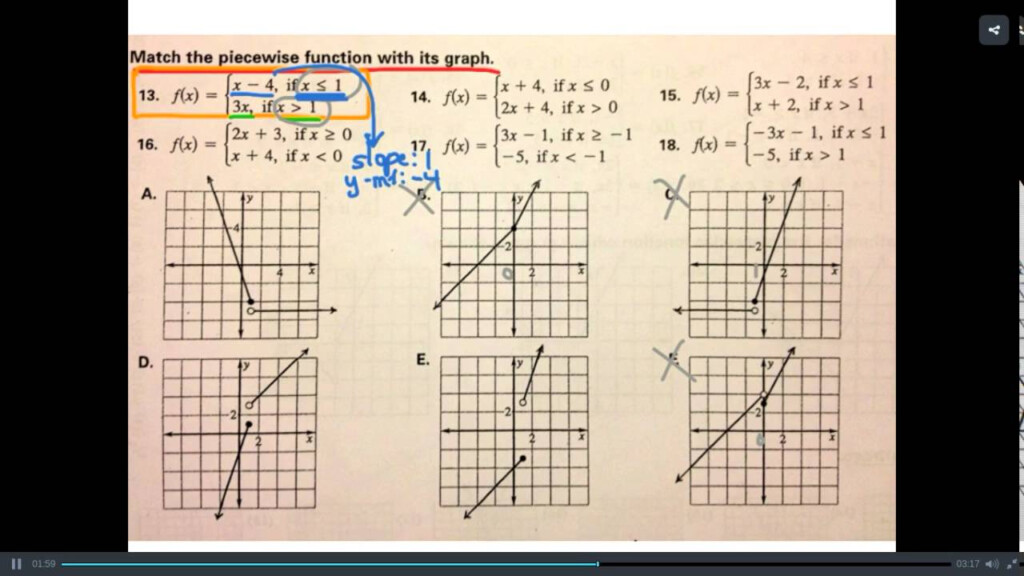 Match the piecewise function with its graph.
13. f(x) = {x − 4, if x ≤ 1
3x, if x > 1
14. f(x) = {x + 4, if x ≤ 0
2x + 4, if x > 0
15. f(x) = {3x − 2, if x ≤ 1
x + 2, if x > 1
16. f(x) = {2x + 3, if x ≥ 0
x + 4, if x < 0
17. f(x) = {3x − 1, if x ≥ −1
−5, if x < −1
18. f(x) = {−3x − 1, if x ≤ 1
−5, if x > 1
slope: 1
y-int: -4
A.
y
4
4
x
B.
y
2
0
2
x
C.
y
2
2
x
D.
y
2
2
x
E.
y
2
2
x
F.
y
2
2
x
01:59
03:17